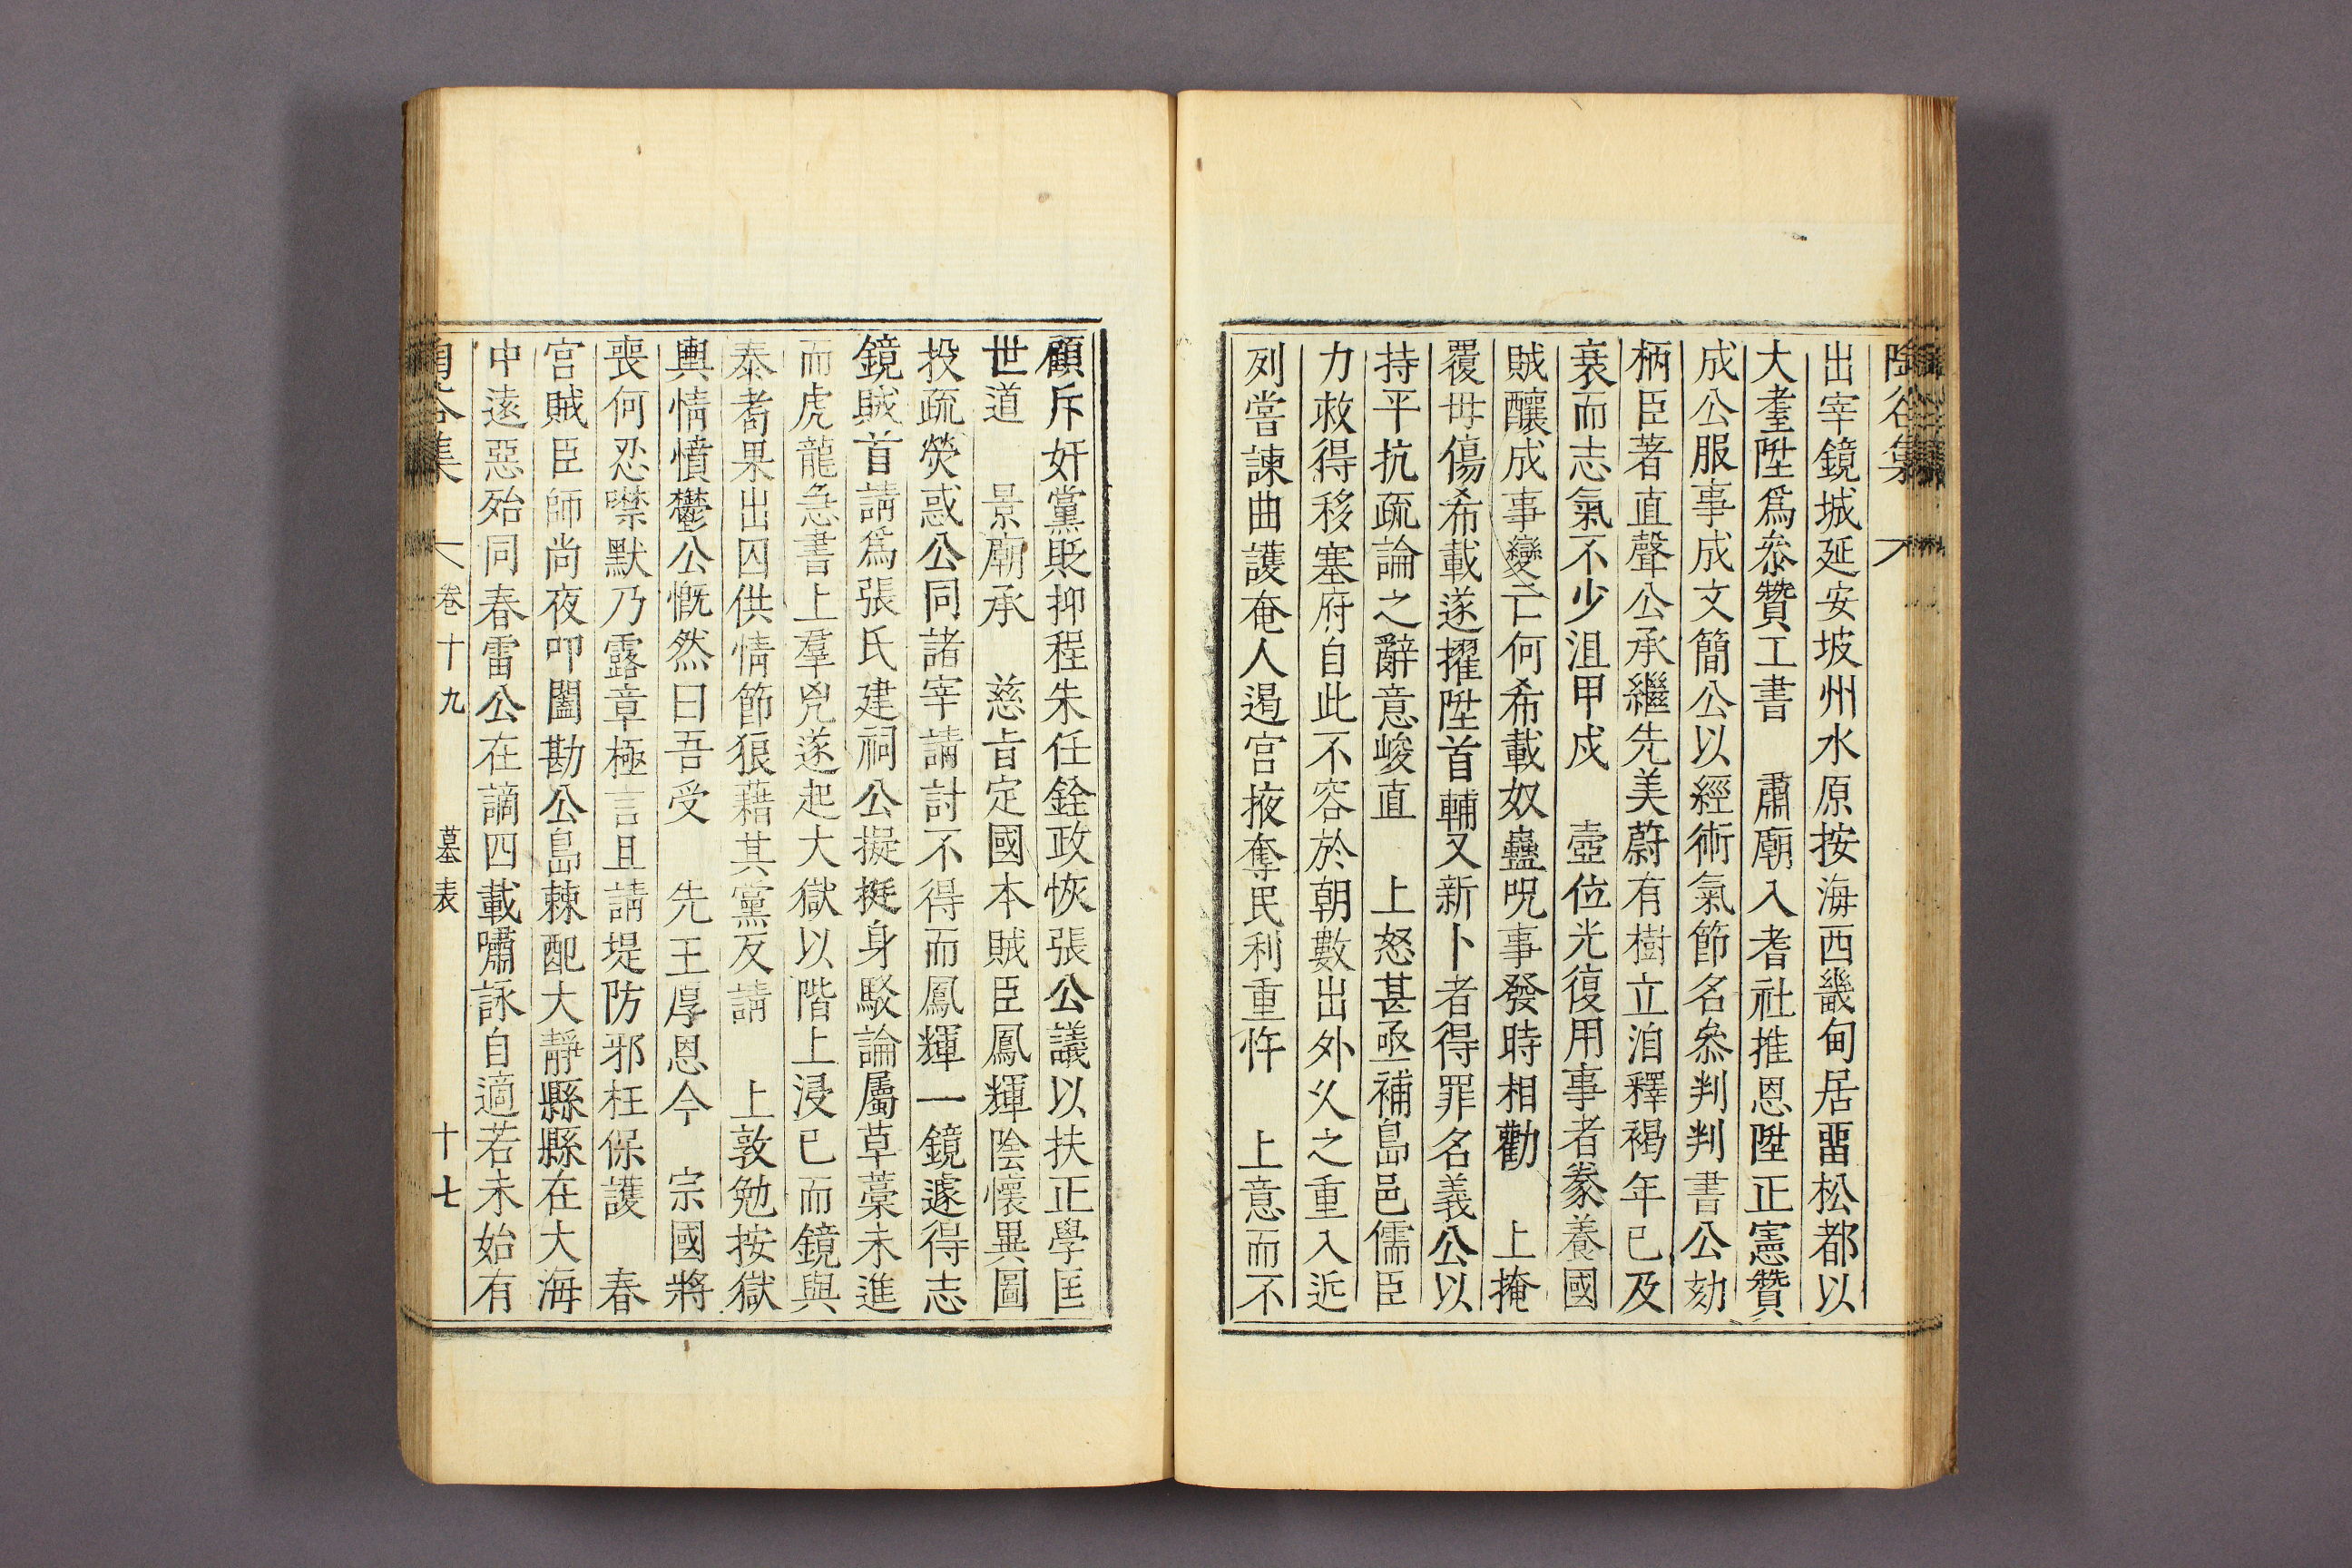 陶谷集
出宰鏡城延安坡州水原按海西畿甸居畱松都以
大耋陞爲叅贊工書　肅廟入耆社推恩陞正憲贊
成公服事成文簡公以經術氣節名叅判判書公劾
柄臣著直聲公承繼先美蔚有樹立洎釋褐年已及
衰而志氣不少沮甲戌　壼位光復用事者豢養國
賊釀成事變亡何希載奴蠱呪事發時相勸　上掩
覆毋傷希載遂擢陞首輔又新卜者得罪名義公以
持平抗疏論之辭意峻直　上怒甚亟補島邑儒臣
力救得移塞府自此不容於朝數出外乆之重入近
列嘗諫曲護奄人遏宮掖奪民利重忤　上意而不
顧斥奸黨貶抑程朱任銓政恢張公議以扶正學匡
世道　景廟承　慈旨定國本賊臣鳳輝陰懷異圖
投疏熒惑公同諸宰請討不得而鳳輝一鏡遽得志
鏡賊首請爲張氏建祠公擬挺身駁論屬草藁未進
而虎龍急書上羣兇遂起大獄以階上浸已而鏡與
泰耉果出囚供情節狼藉其黨反請　上敦勉按獄
輿情憤鬱公慨然曰吾受　先王厚恩今　宗國將
喪何忍噤默乃露章極言且請堤防邪枉保護　春
宮賊臣師尚夜叩闔勘公島棘配大靜縣縣在大海
中遠惡殆同春雷公在謫四載嘯詠自適若未始有
卷十九　墓表　十七